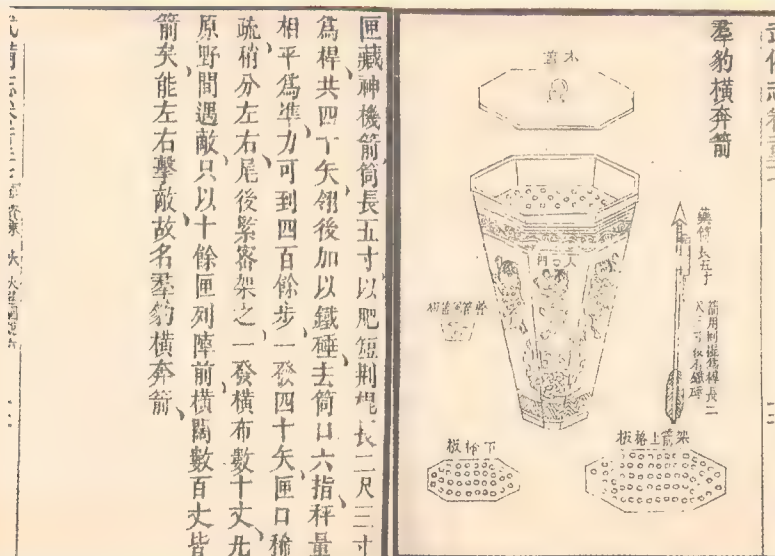 羣豹橫奔箭
木蓋
藥筒長五寸
箭用荆棍為桿長二
尺三寸後有鐵碎
火門
架箭上格板
下格板
匣藏神機箭筒長五寸以肥短荆棍長二尺三寸
為桿共四十矢翎後加以鐵碎去筒口六指秤量
相平為準力可到四百餘步一發四十矢匣口稀
疏稍分左右尾後緊密架之一發橫布數十丈凡
原野間遇敵只以十餘匣列陣前橫闊數百丈皆
箭矣能左右擊敵故名羣豹橫奔箭